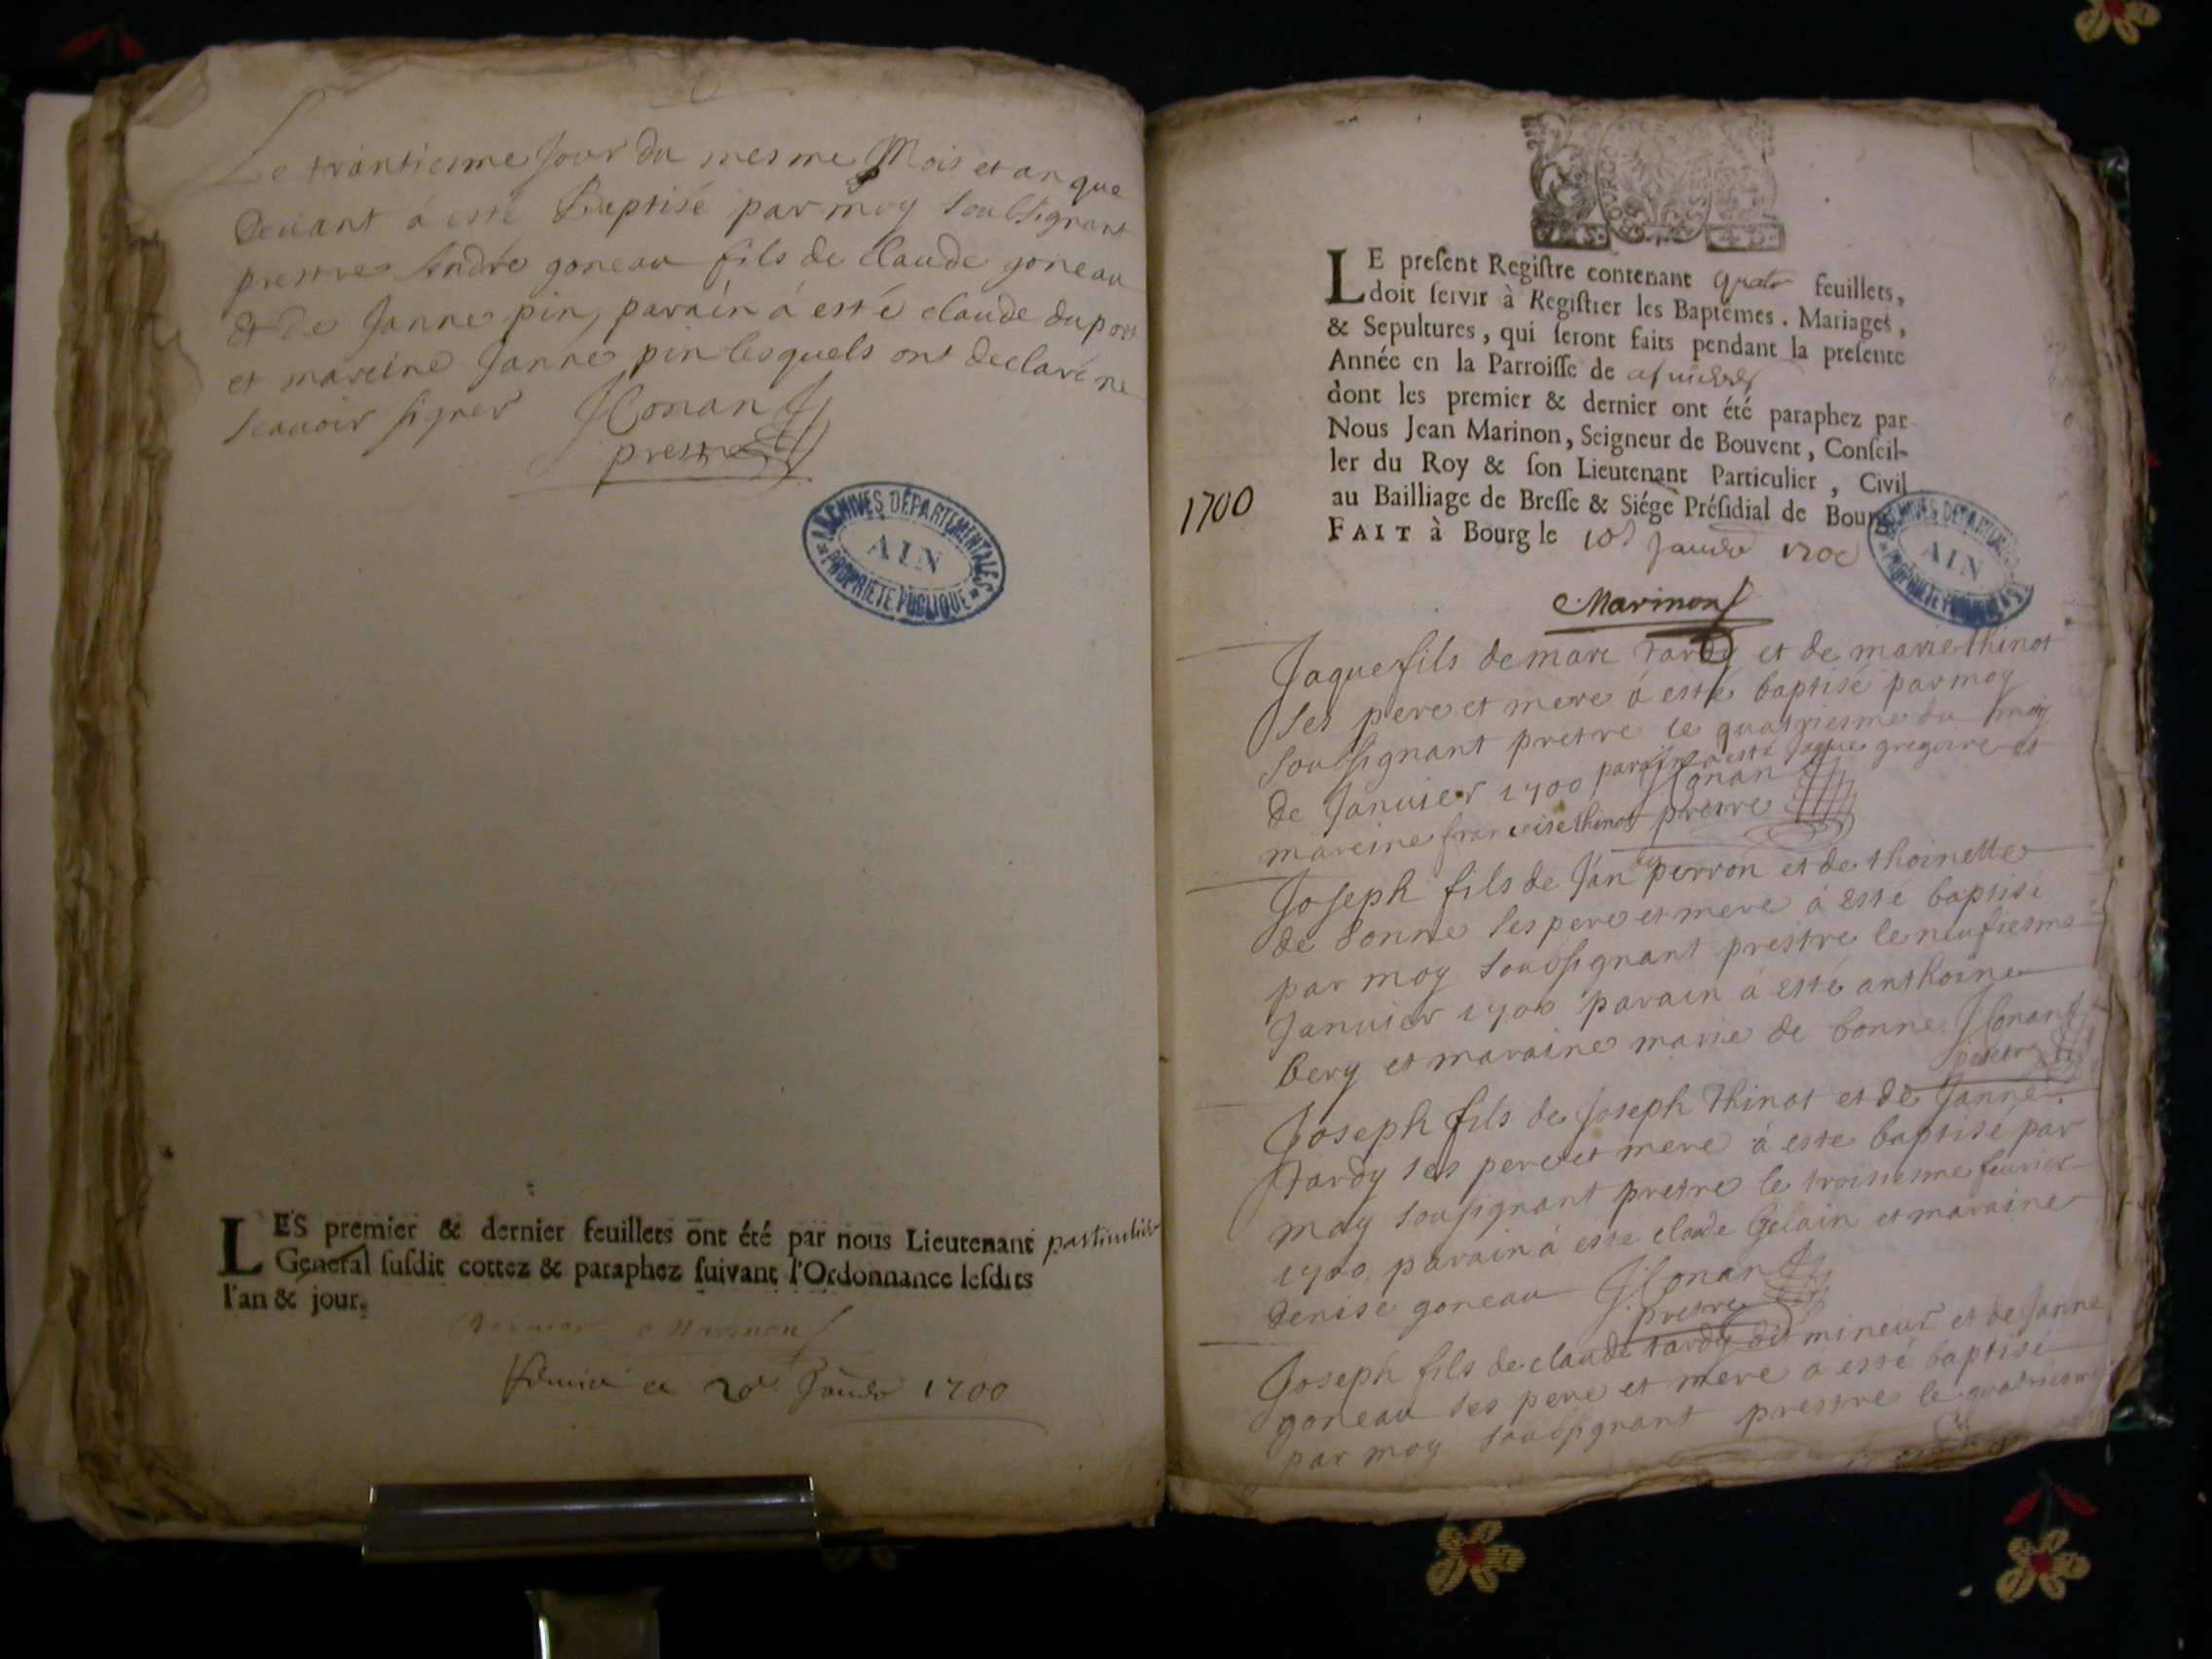 Le trantiesme Jour du mesme Mois et an que
devant á esté Baptisé par moy soubsignant
prestre André goneau fils de Claude goneau
et de Janne pin, parain á esté claude duport
et mareine Janne pin lesquels ont declaré ne
scauoir signer JConan
prestre
ARCHIVES DÉPARTEMENTALES
AIN
PROPRIETE PUBLIQUE
LES premier & dernier feuillets ont été par nous Lieutenant particulier
General suſdit cottez & paraphez ſuivant l'Ordonnance leſdits
l'an & jour.
Dernier Marinon
1700
LE preſent Regiſtre contenant quatre feuillets,
doit ſervir à Regiſtrer les Baptêmes. Mariages,
& Sepultures, qui ſeront faits pendant la preſente
Année en la Parroiſſe de
dont les premier & dernier ont été paraphez par
Nous Jean Marinon, Seigneur de Bouvent, Conſeil-
ler du Roy & ſon Lieutenant Particulier, Civil
au Bailliage de Breſſe & Siége Préſidial de Bourg
1700
FAIT à Bourg le 1700
ARCHIVES DÉPARTEMENTALES
AIN
PROPRIETE PUBLIQUE
Marinon
Jaque fils de marc tardy et de marie thinot
ses pere et mere á esté baptisé par moy
soubsignant pretre le quatriesme du moy
de Januier 1700, parain a esté Jaque gregoire et
mareine francoise thinot JConan
prestre
Joseph fils de Jan perron et de thoinette
de bonne ses pere et mere á esté baptisé
par moy soubsignant prestre le neufiesme
Januier 1700 parain á esté anthoine
bery et maraine marie de bonne JConan
prestre
Joseph fils de Joseph thinot et de Janne
tardy ses pere et mere á esté baptisé par
moy sousignant pretre le troisiesme feurier
1700, parain á esté claude Gelain et maraine
denise goneau JConan
prestre
Joseph fils de claude tardy dit mineur et de Janne
goneau ses pere et mere a esté baptisé
par moy soubsignant prestre le quatriesme